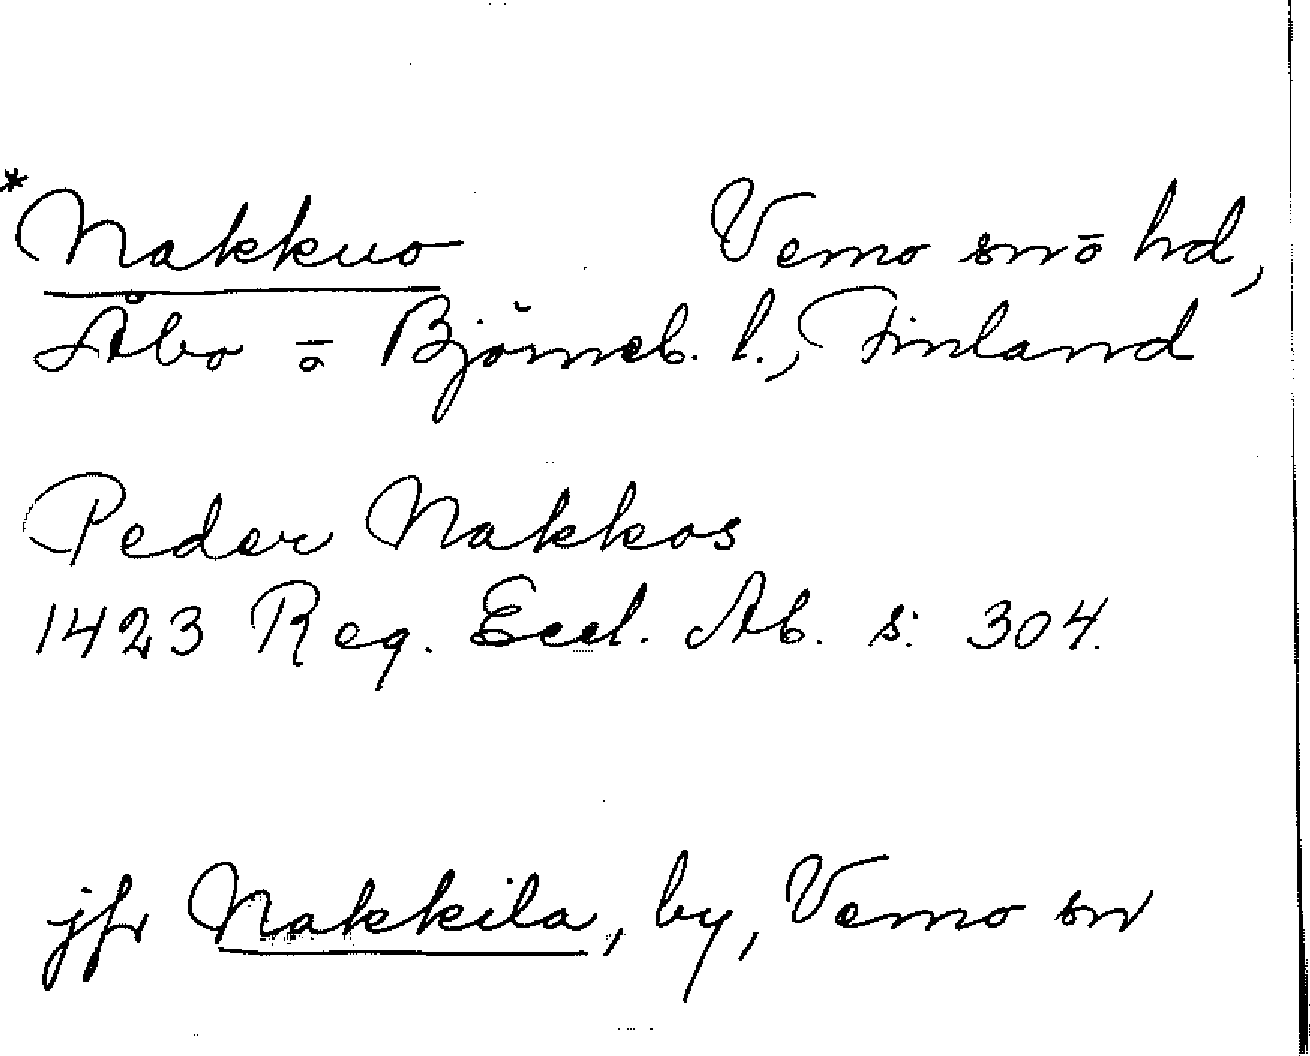 *Nakkuo Vemo sn ō hd,
Åbo ō Björneb. l., Finland
Peder Nakkos
1423 Reg. Eccl. Ab. s: 304.
jfr Nakkila, by, Vemo sn